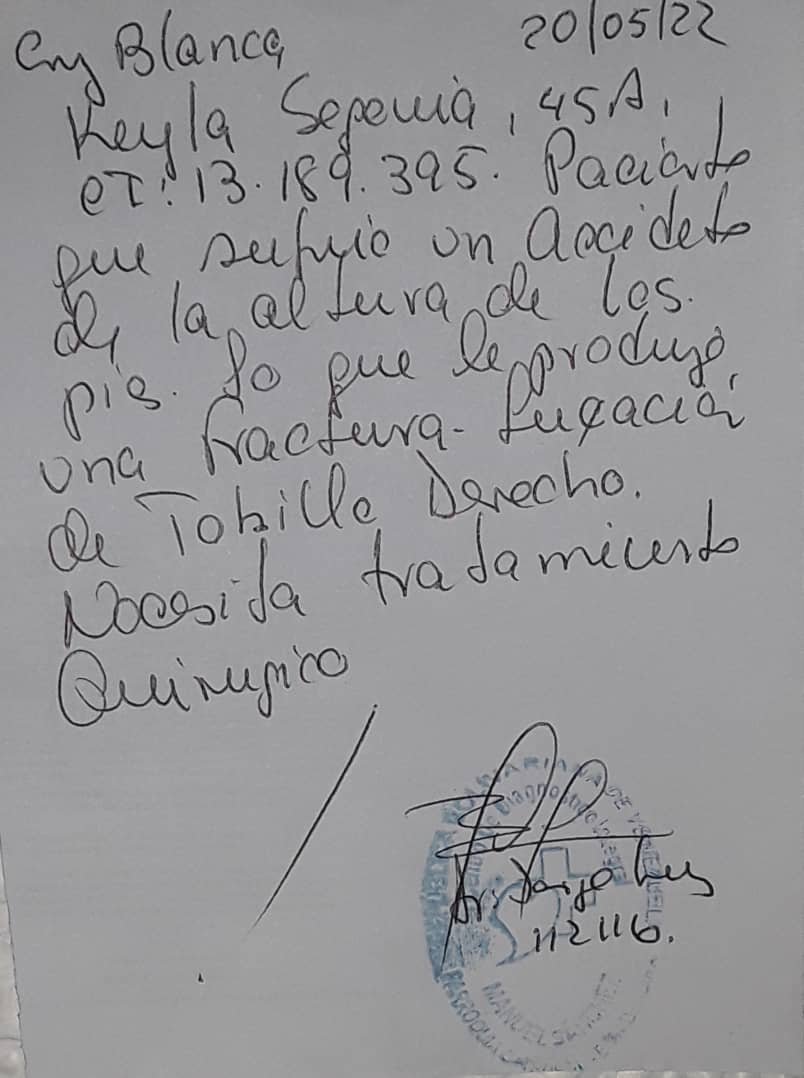 Blanca
20/05/22
Keyla Segovia, 45A,
CI: 13.189.395. Paciente
que sufrio un Accidete
de la altura de los
pis. Lo que le produjo
una fractura-Luxación
de Tobillo Derecho.
Necesita tratamiento
Quirurgico
112116.
MANUEL
PARROQUIA